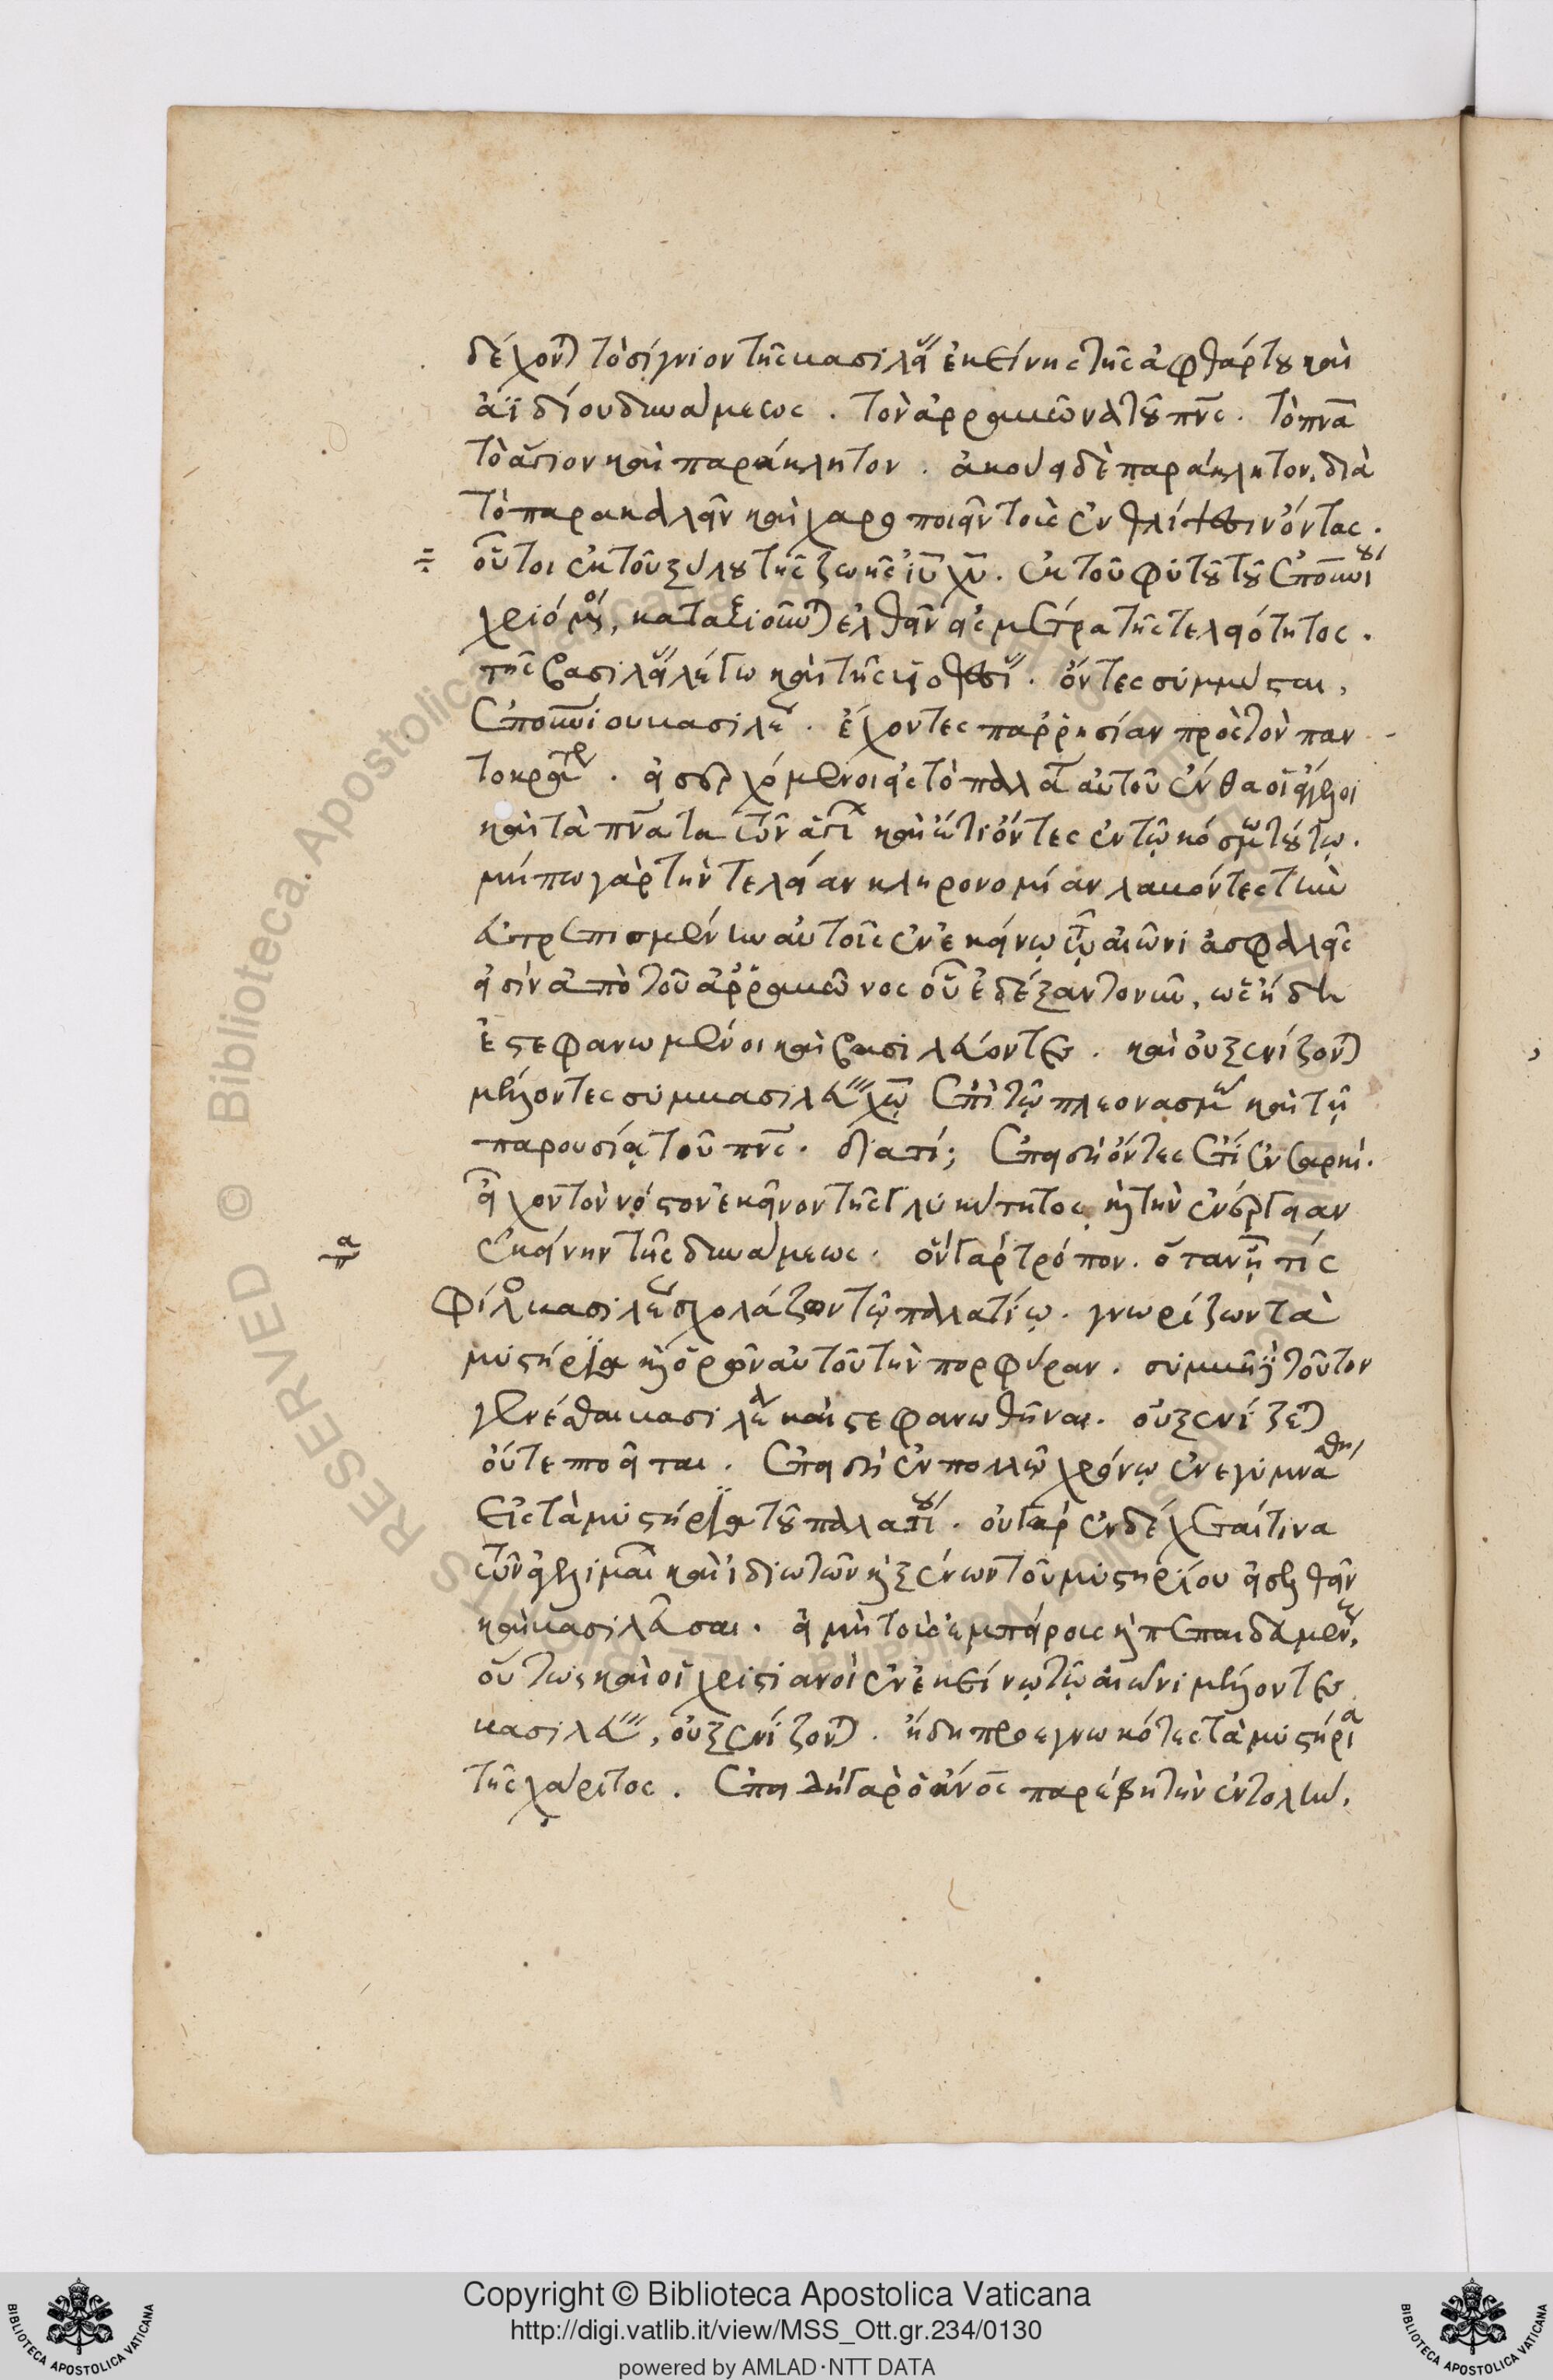 δέχοντ τὸ σίγνιον τῆς βασιλεί ἐκείνης τῆς ἀφθάρτου καὶ
ἀϊδίου δυνάμεως. τὸν ἀρραβῶνα τοῦ πνς. τὸ πνα
τὸ ἅγιον καὶ παράκλητον. ἀκούει δὲ παράκλητον, διὰ
τὸ παρακαλεῖν καὶ χαρο ποιεῖν τοὺς ἐν θλίψεσιν ὄντας.
οὗτοι ἐκ τοῦ ξύλου τῆς ζωῆς ἰυ χυ. ἐκ τοῦ φυτοῦ τοῦ ἐπουνίου
χριόμοι, καταξιοῦντ ἐλθεῖν εἰς μέτρα τῆς τελειότητος.
τῆς βασιλεί λέγω καὶ τῆς υἱοθεσί. ὄντες σύμμυσται,
ἐπουνίου βασιλέ. ἔχοντες παρρησίαν πρὸς τὸν παν
τοκρατρ. εἰσερχόμενοι εἰς τὸ παλάτ αὐτοῦ ἔνθα οἱ ἄγγελοι
καὶ τὰ πνατα τῶν ἁγί καὶ ἔτι ὄντες ἐν τῷ κόσμω τούτῳ.
μήπω γὰρ τὴν τελείαν κληρονομίαν λαβόντες τὴν
εὐτρεπισμένην αὐτοῖς ἐν ἐκείνῳ τῷ αἰῶνι ἀσφαλεῖς
εἰσὶν ἀπὸ τοῦ ἀρραβῶνος οὗ ἐδέξαντο νῦν, ὡς ἤδη
ἐστεφανωμένοι καὶ βασιλεύοντες. καὶ οὐ ξενίζοντ
μέλλοντες συμβασιλεύ χῶ ἐπὶ τῷ πλεονασμῶ καὶ τῇ
παρουσίᾳ τοῦ πνς. διατί; ἐπειδὴ ὄντες ἔτι ἐν σαρκί.
εἶχον τὸν νόστον ἐκεῖνον τῆς γλυκύτητος, καὶ τὴν ἐνέργειαν
ἐκείνην τῆς δυνάμεως. ὃν γὰρ τρόπον. ὅταν ᾖ τίς
φίλο βασιλέ σχολάζων τῷ παλατίῳ. γνωρίζων τὰ
μυστήρια καὶ ὁρῶν αὐτοῦ τὴν πορφύραν. συμβῇ τοῦτον
γενέσθαι βασιλέα καὶ στεφανωθῆναι. οὐ ξενίζετ
οὔτε ποεῖται. ἐπειδὴ ἐν πολλῷ χρόνῳ ἐνεγυμνάσθη
εἰς τὰ μυστήρια τοῦ παλατίου. οὐ γὰρ ἐνδέχεταί τινα
τῶν καὶ ἰδιωτῶν καὶ ξένων τοῦ μυστηρίου εἰσελθεῖν
καὶ βασιλεῦσαι. εἰ μὴ τοὺς ἐμπείρους καὶ πεπαιδευμένους,
οὕτως καὶ οἱ χριστιανοὶ ἐν ἐκείνῳ τῷ αἰῶνι μέλλοντες
βασιλεύ, οὐ ξενίζοντ. ἤδη προεγνωκότες τὰ μυστήρια
τῆς χάριτος. ἐπειδὴ γὰρ ὁ ἄνος παρέβη τὴν ἐντολήν,
Copyright © Biblioteca Apostolica Vaticana
http://digi.vatlib.it/view/MSS_Ott.gr.234/0130
powered by AMLAD·NTT DATA